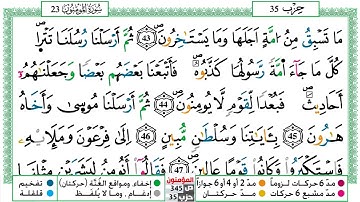 23 سُورَةُ المُؤْمِنُونَ حِزْب 35
مَا تَسْبِقُ مِنُ اُمَّةٍ اَجَلَهَا وَمَا يَسْتَـٰٔخِرُونَ 43 ثُمَّ أَرْسَلْنَا رُسُلَنَا تَتْر۪اۖ
كُلَّ مَا جَآءَ اُمَّةً رَّسُولُهَا كَذَّبُوهُۖ فَأَتْبَعْنَا بَعْضَهُم بَعْضًا وَجَعَلْنَٰهُمُۥ
أَحَادِيثَۖ فَبُعْدًا لِّقَوْمٍ لَّا يُومِنُونَۖ 44 ثُمَّ أَرْسَلْنَا مُوس۪يٰ وَأَخَاهُ
هَٰرُونَ 45 بِـَٔايَٰتِنَا وَسُلْطَٰنٍ مُّبِينٍ 46 اِلَىٰ فِرْعَوْنَ وَمَلَإِيْهِۦ
فَاسْتَكْبَرُوا۟ وَكَانُوا۟ قَوْمًا عَالِينَۖ 47 فَقَالُوٓا۟ أَنُومِنُ لِبَشَرَيْنِ مِثْلِنَا
مدّ 6 حركات لزوماً مدّ 2 أو 4 أو 6 جوازاً إخفاء، ومواقع الغُنَّة (حركتان) تفخيم
مدّ مشبع 6 حركات مدّ حركتان إدغام، وما لا يُلفظ قلقلة
المؤمنون
ص 345
حزب 35